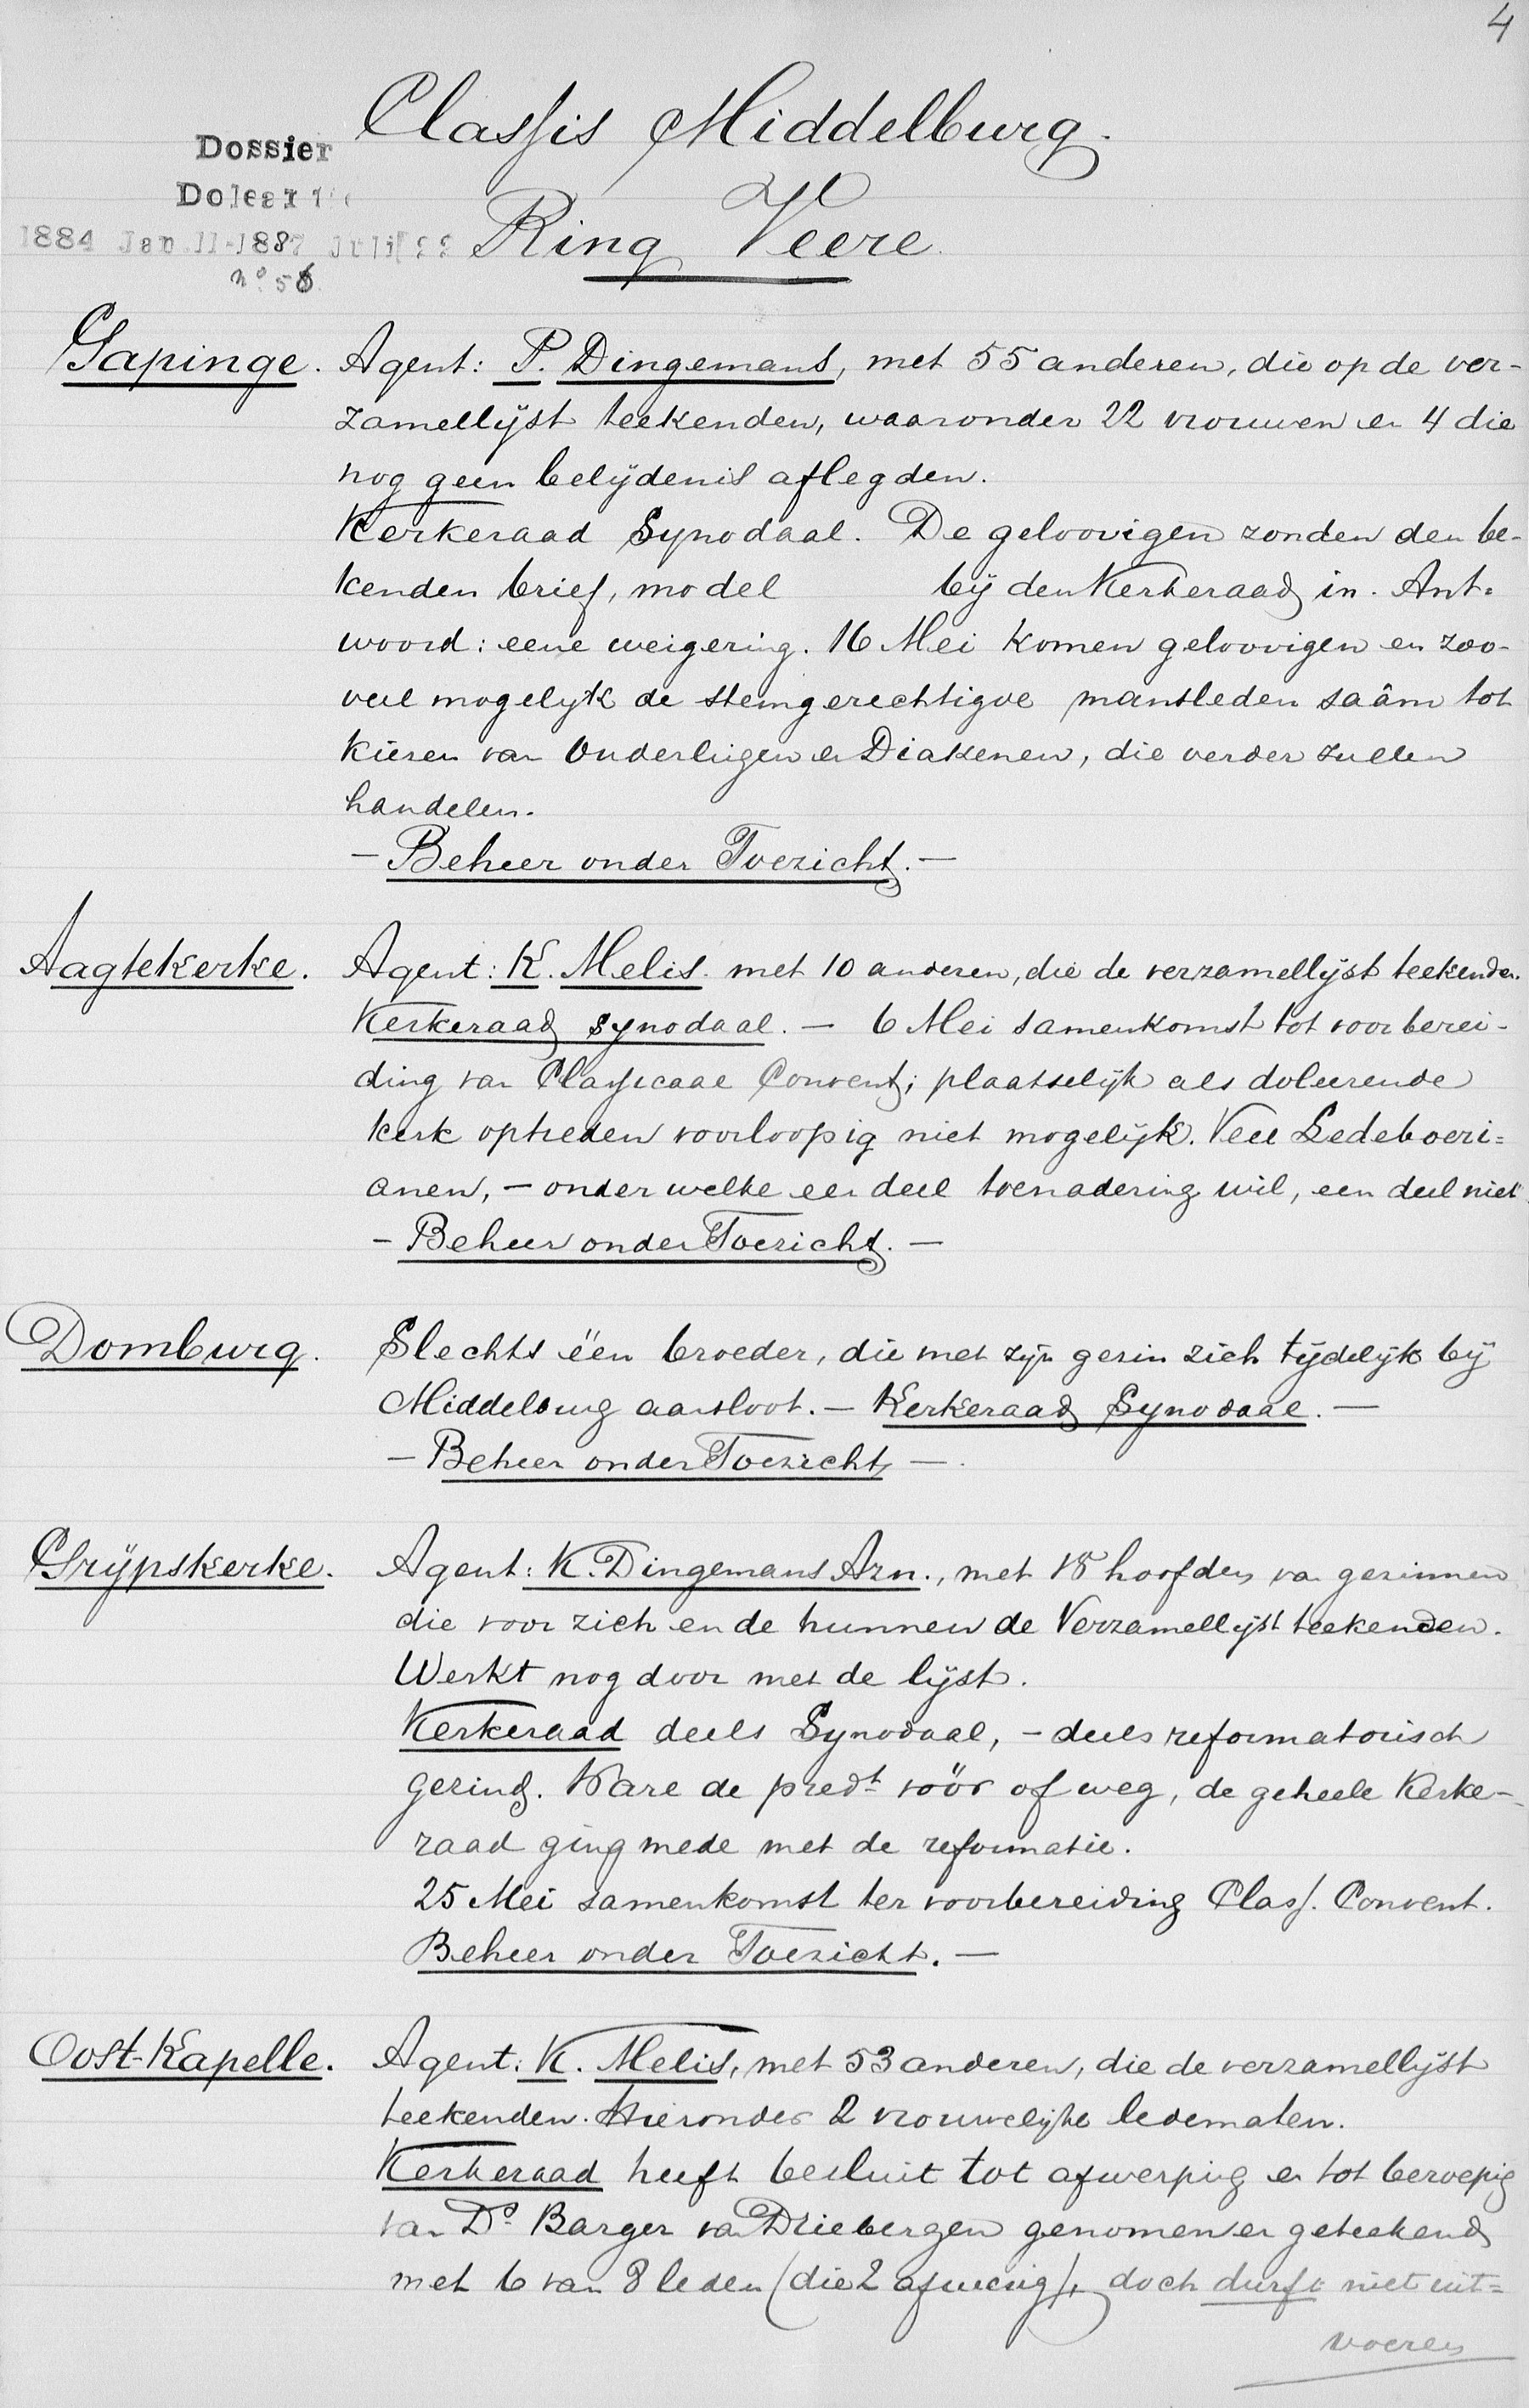 4
Classis Middelburg.
Dossier
Doleantie
1884 Jan 11-1887 Juli 22
no. 56
Ring Veere.
Gapinge. Agent: P. Dingemans, met 55 anderen, die op de ver-
zamellijst teekenden, waaronder 22 vrouwen en 4 die
nog geen belijdenis aflegden.
Kerkeraad Synodaal. De geloovigen zonden den be-
kenden brief, model bij den Kerkeraad in. Ant-
woord: eene weigering. 16 Mei komen geloovigen en zoo-
veel mogelijk de stemgerechtigde mansleden saâm tot
kiezen van Ouderlingen en Diakenen, die verder zullen
handelen.
- Beheer onder Toezicht. -
Aagtekerke. Agent: K. Melis. met 10 anderen, die de verzamellijst teekenden.
Kerkeraad synodaal. - 6 Mei samenkomst tot voorberei-
ding van Classicaal Convent; plaatselijk als doleerende
kerk optreden voorloopig niet mogelijk. Veel Ledeboeri=
anen, - onder welke een deel toenadering wil, een deel niet.
- Beheer onder Toezicht. -
Domburg. Slechts één broeder, die met zijn gezin zich tijdelijk bij
Middelburg aansloot. - Kerkeraad Synodaal. -
- Beheer onder Toezicht -.
Grijpskerke. Agent: K. Dingemans Azn., met 18 hoofden van gezinnen
die voor zich en de hunnen de Verzamellijst teekenden.
Werkt nog door met de lijst.
Kerkeraad deels Synodaal, - deels reformatorisch
gezind. Ware de predt. vóór of weg, de geheele Kerke-
raad ging mede met de reformatie.
25 Mei samenkomst ter voorbereiding Class. Convent.
Beheer onder Toezicht. -
Oost-Kapelle. Agent: K. Melis, met 53 anderen, die de verzamellijst
teekenden. Hieronder 2 vrouwelijke ledematen.
Kerkeraad heeft besluit tot afwerping en tot beroeping
van Ds. Barger van Driebergen genomen en geteekend
met 6 van 8 leden (die 2 afwezig), doch durft niet uit=
voeren